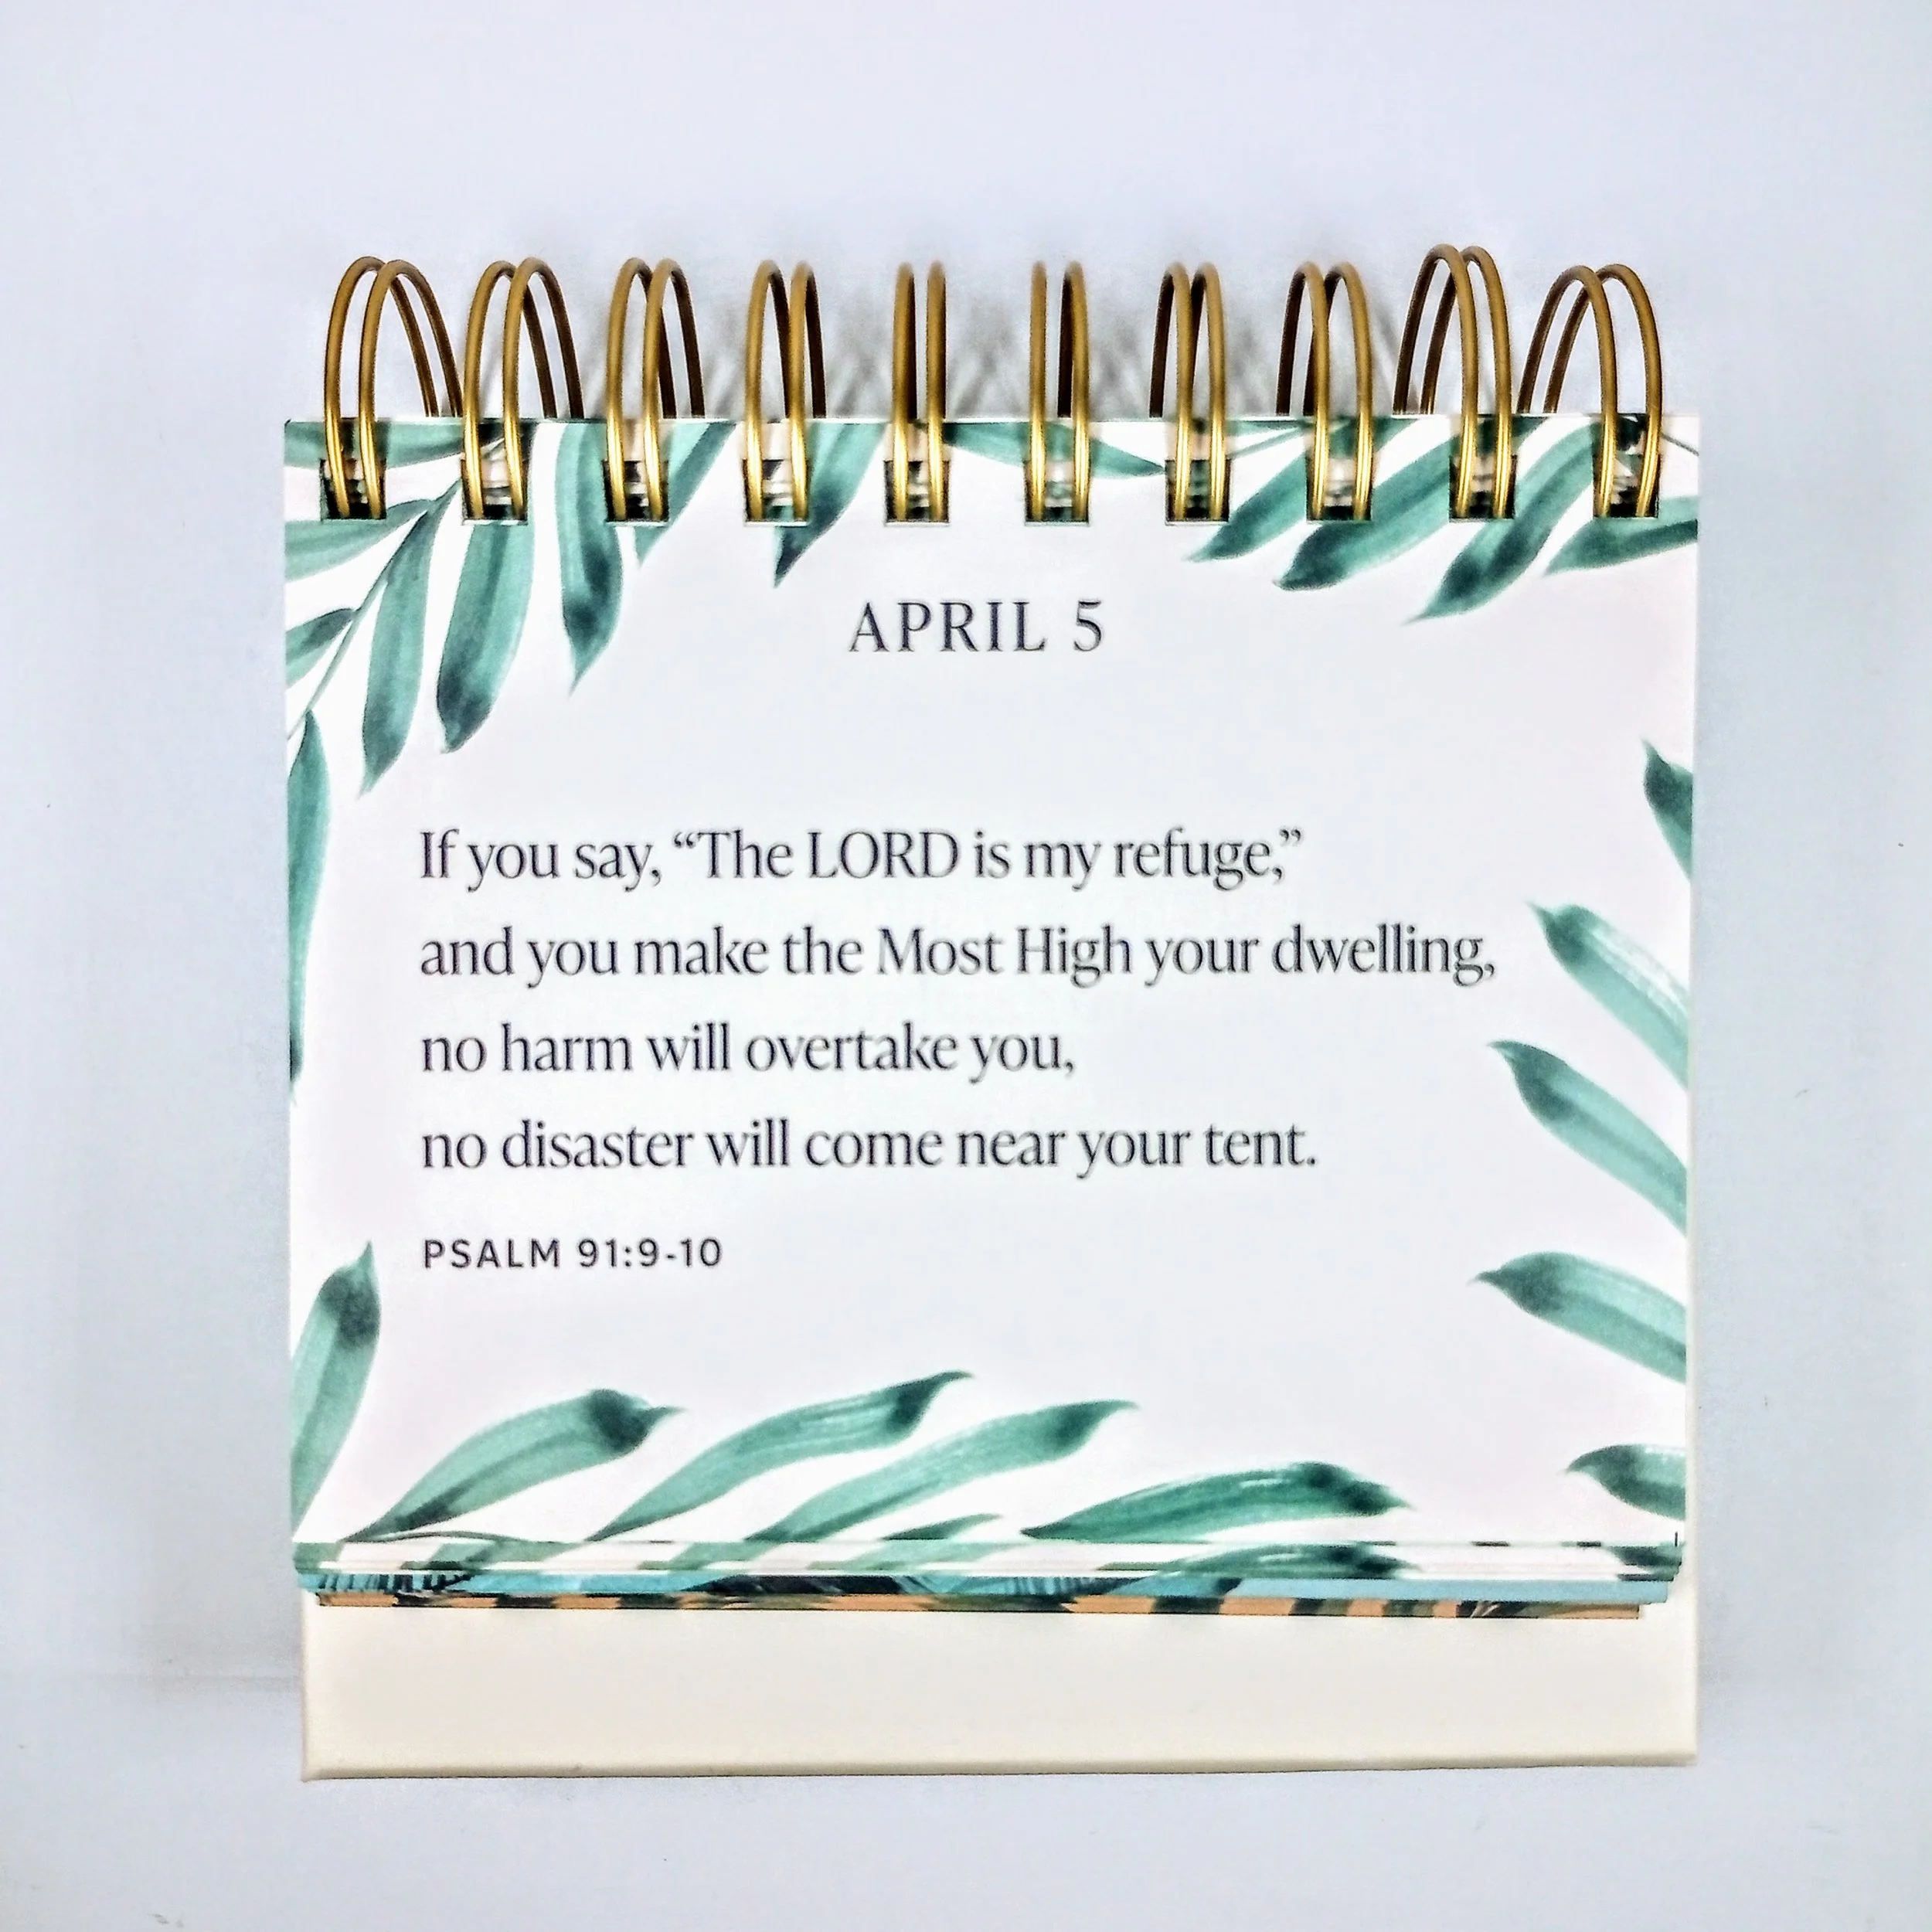 APRIL 5
If you say, “The LORD is my refuge,”
and you make the Most High your dwelling,
no harm will overtake you,
no disaster will come near your tent.
PSALM 91:9-10